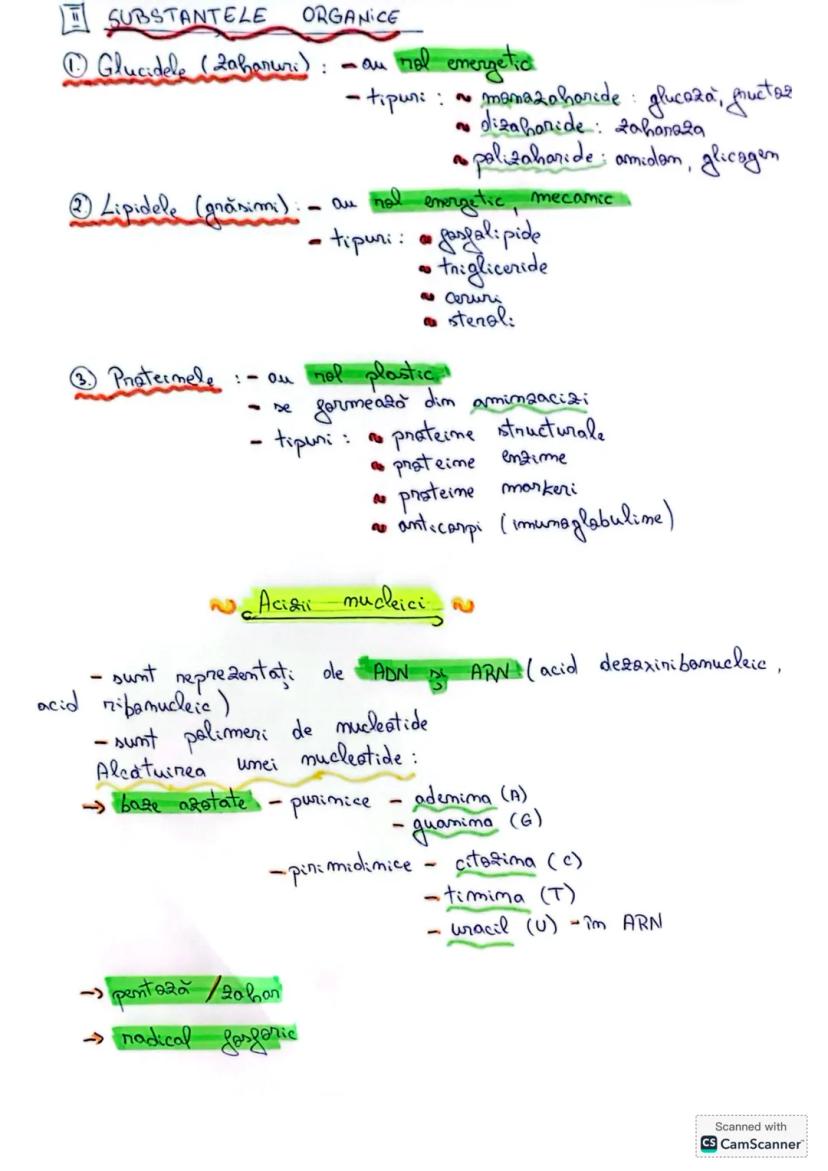 II SUBSTANTELE ORGANICE
① Glucidele (zaharuri) : - au rol energetic
- tipuri : ~ monozaharide : glucoză, fructoz
~ dizaharide : zaharoza
~ polizaharide : amidon, glicogen
② Lipidele (grăsimi) : - au rol energetic, mecanic
- tipuri : ~ fosfolipide
~ trigliceride
~ ceruri
~ steroli
③ Proteinele : - au rol plastic
- se formează din aminoacizi
- tipuri : ~ proteine structurale
~ proteine enzime
~ proteine markeri
~ anticorpi (imunoglobuline)
~ Acizii nucleici ~
- sunt reprezentați de ADN și ARN (acid dezoxiribonucleic,
acid ribonucleic)
- sunt polimeri de nucleotide
Alcătuirea unei nucleotide :
→ baze azotate - purinice - adenina (A)
- guanina (G)
- pirimidinice - citozina (C)
- timina (T)
- uracil (U) - în ARN
→ pentoză / zahar
→ radical fosforic
Scanned with
CS CamScanner